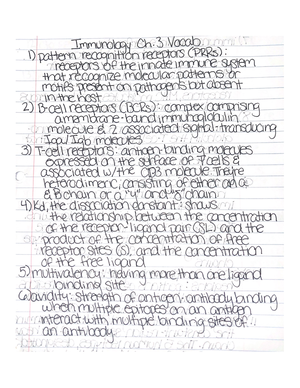 Immunology Ch. 3 Vocab
1) pattern recognition receptors (PRRs):
receptors of the innate immune system
that recognize molecular patterns or
motifs present on pathogens but absent
in the host
2) B-cell receptors (BCRs): complex comprising
a membrane-bound immunoglobulin
molecule & 2 associated signal-transducing
Igα/Igβ molecules
3) T-cell receptors: antigen-binding molecules
expressed on the surface of T cells &
associated w/the CD3 molecule. They're
heterodimeric, consisting of either an α
& β chain or a "γ" and "δ" chain
4) Kd, the dissociation constant: shows
the relationship between the concentration
of the receptor-ligand pair (SL) and the
product of the concentration of free
receptor sites (S), and the concentration
of the free ligand
5) multivalency: having more than one ligand
binding site
6) avidity: strength of antigen-antibody binding
when multiple epitopes on an antigen
interact with multiple binding sites of
an antibody